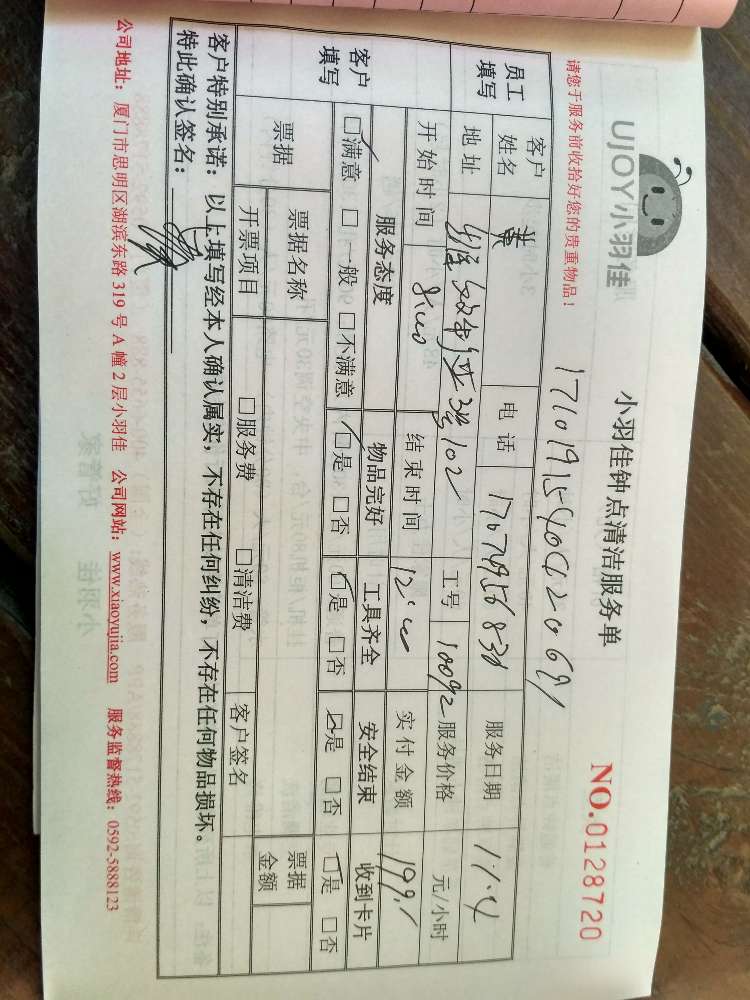 UJOY小羽佳
小羽佳钟点清洁服务单
NO.0128720
请您于服务前收拾好您的贵重物品!
员工填写
客户姓名 黄 电话 服务日期 11.4
地址 3号102 工号 10092 服务价格 元/小时
开始时间 8:00 结束时间 12:00 实付金额 199.1
客户填写
服务态度 物品完好 工具齐全 安全结束 收到卡片
☑满意 □一般 □不满意 ☑是 □否 ☑是 □否 ☑是 □否 ☑是 □否
票据 票据名称 客户签名 票据金额
开票项目 □服务费 □清洁费
客户特别承诺:以上填写经本人确认属实,不存在任何纠纷,不存在任何物品损坏。
特此确认签名:
公司地址:厦门市思明区湖滨东路319号A幢2层小羽佳 公司网站:www.xiaoyujia.com 服务监督热线:0592-5888123